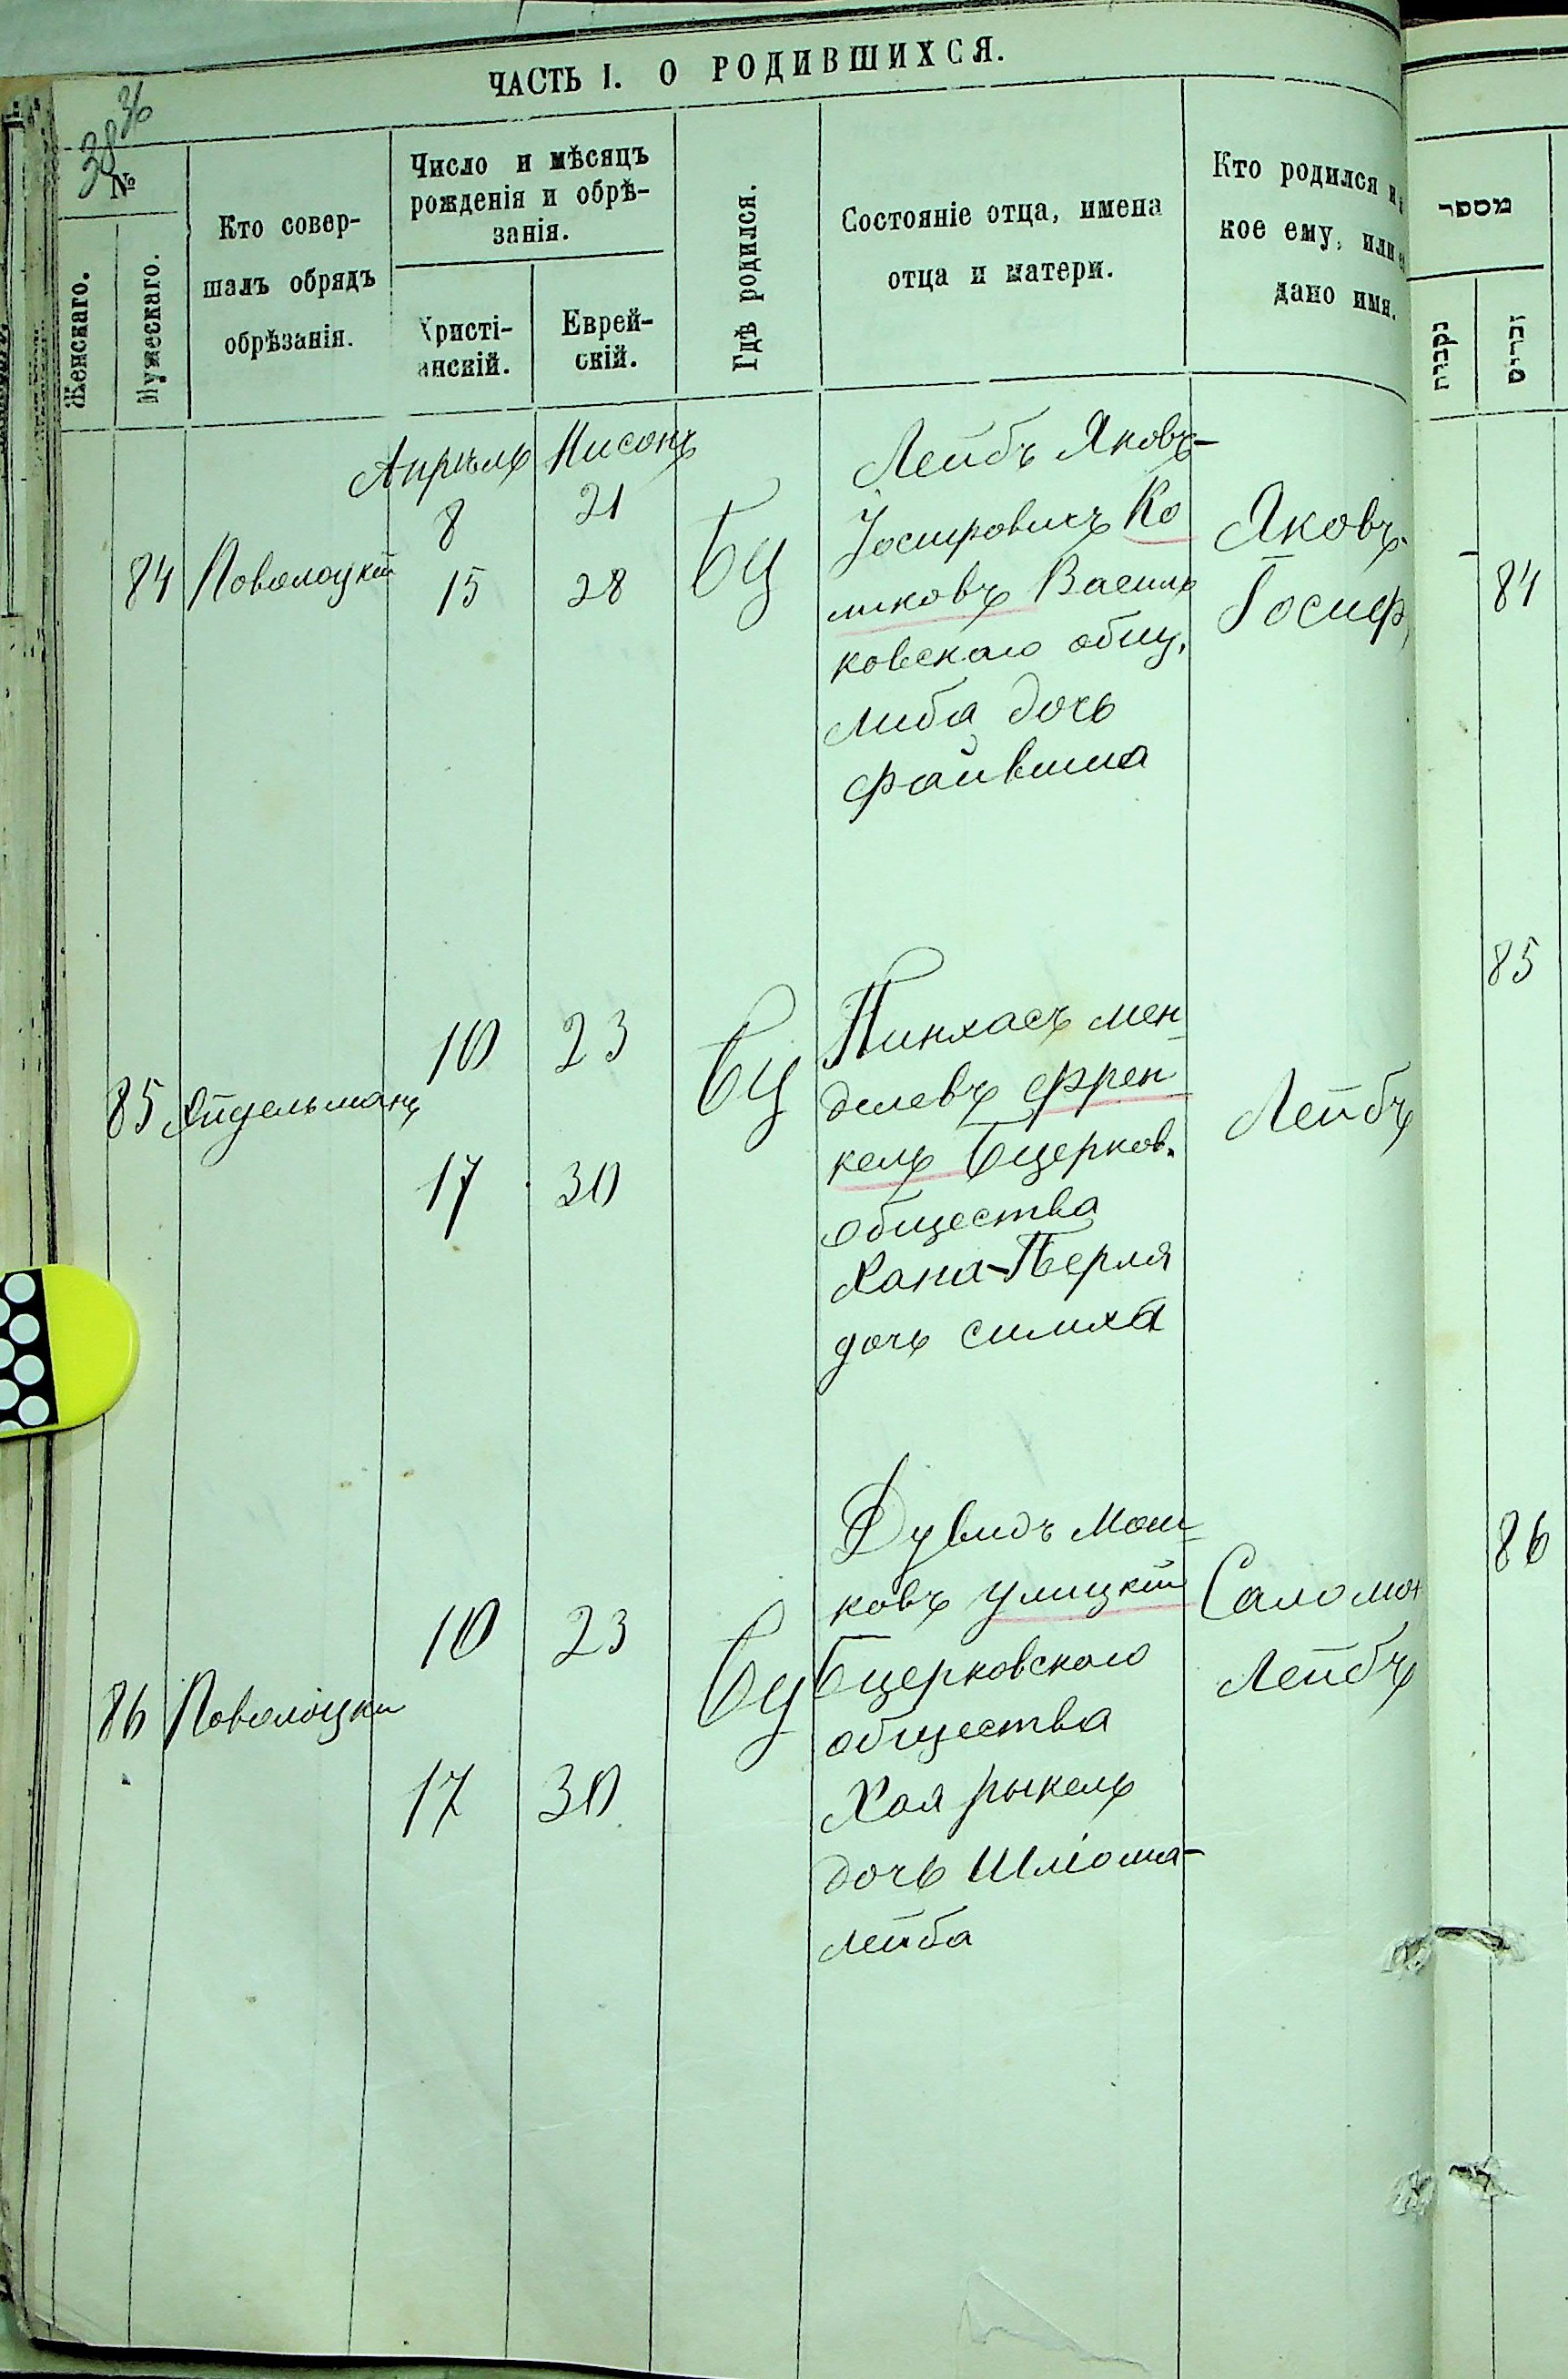 ЧАСТЬ I. О РОДИВШИХСЯ.
36
38
№
Женскаго.
Мужескаго.
Кто совер-
шалъ обрядъ
обрѣзанія.
Число и мѣсяцъ
рожденія и обрѣ-
занія.
Христі-
анскій.
Еврей-
скій.
Гдѣ родился.
Состояніе отца, имена
отца и матери.
Кто родился и
кое ему, или
дано имя.
מספר
נקברה
זכרים
Апрѣль Нисонъ
84 Поволоцкій
8 21
15 28
Бц
Лейбъ Яковъ-
Іосифовичъ Ко
ликовъ Василь
ковскаго общ.
Либа дочь
Файвиша
Яковъ-
Іосиф
84
85 Айдельманъ
10 23
17 30
Бц
Пинхасъ Мен
делевъ Френ
кель Бцерков.
общества
Хана-Перля
дочь Симха
Лейбъ
85
86 Поволоцки
10 23
17 30
Бц
Дувидъ Мош
ковъ Улицкій
Бцерковскаго
общества
Хая Рыкель
дочь Шліома-
Лейба
Саломон
Лейбъ
86